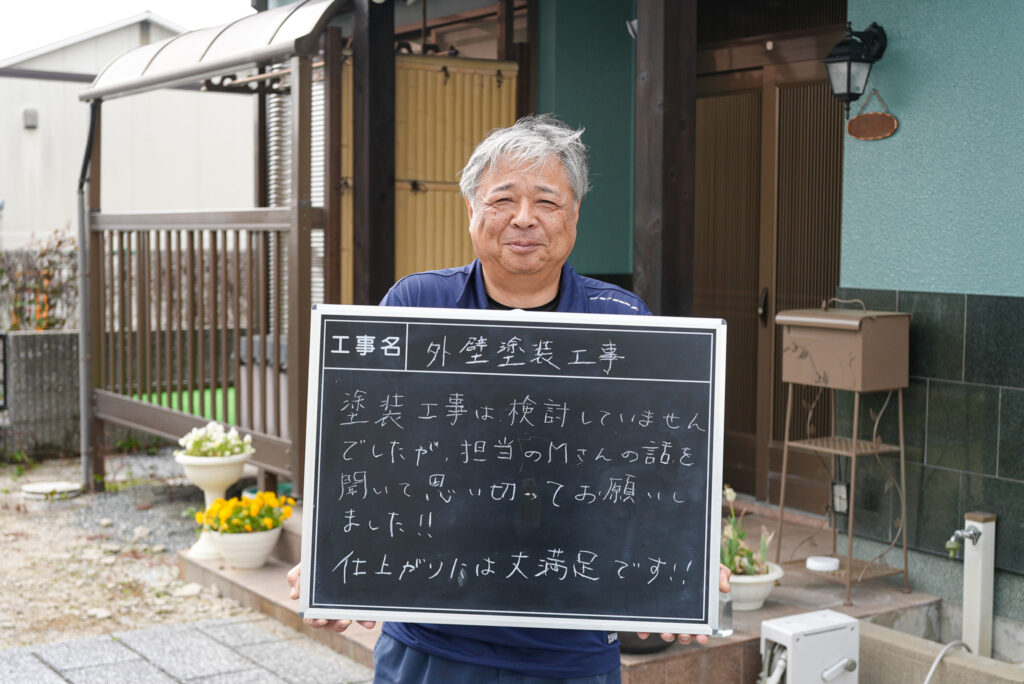 工事名 外壁塗装工事
塗装工事は検討していません
でしたが、担当のMさんの話を
聞いて思い切ってお願いし
ました!!
仕上がりには大満足です!!